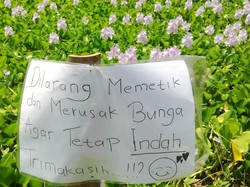 Dilarang Memetik
dan Merusak Bunga
Agar Tetap Indah
Trimakasih...!!?